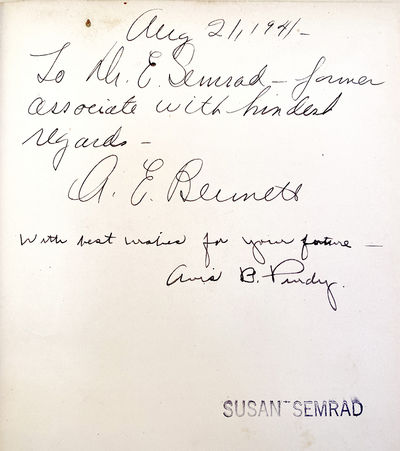 Aug 21, 1941-
To Dr. E. Semrad - former
associate with kindest
regards -
A. E. Bennett
With best wishes for your future -
Avis B. Purdy.
SUSAN SEMRAD